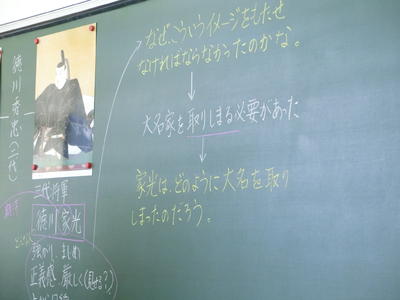 なぜ、こういうイメージをもたせ
なければならなかったのかな。
大名家を取りしまる必要があった
家光は、どのように大名を取り
しまったのだろう。
徳川秀忠(二代)
三代将軍
徳川家光
強がり、まじめ
正義感、厳しく(見せる?)